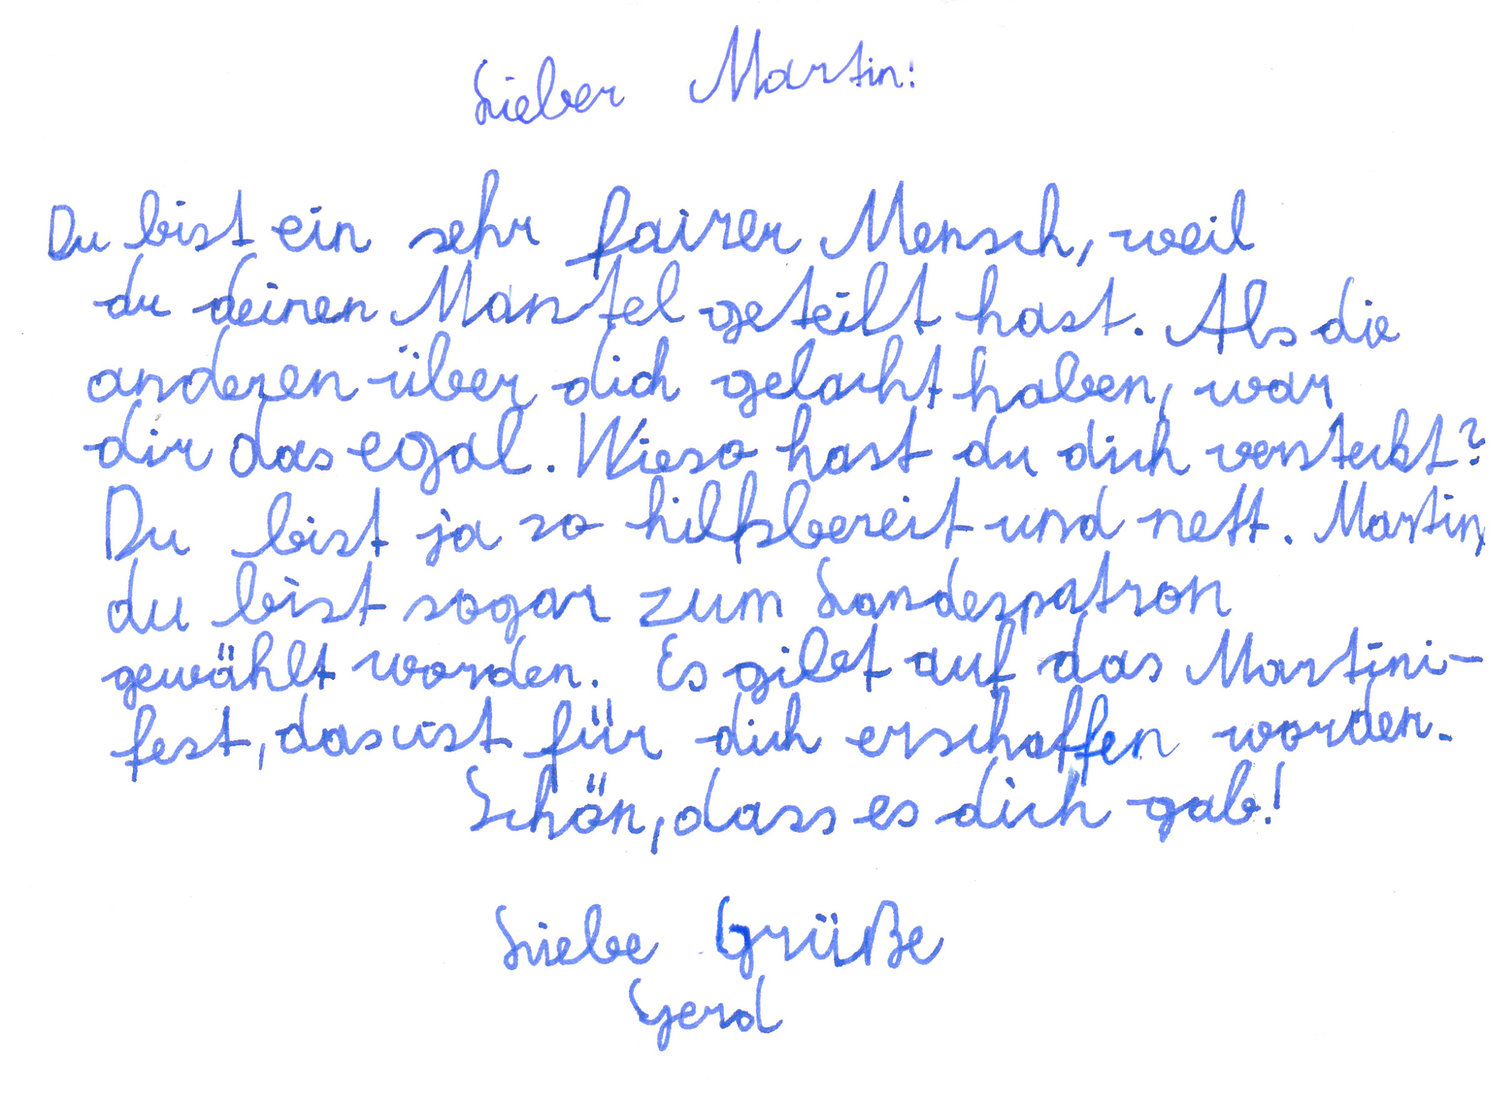 Lieber Martin:
Du bist ein sehr fairer Mensch, weil
du deinen Mantel geteilt hast. Als die
anderen über dich gelacht haben, war
dir das egal. Wieso hast du dich versteckt?
Du bist ja so hilfsbereit und nett. Martin,
du bist sogar zum Landespatron
gewählt worden. Es gibt auf das Martini-
fest, das ist für dich erschaffen worden.
Schön, dass es dich gab!
Liebe Grüße
Gerd